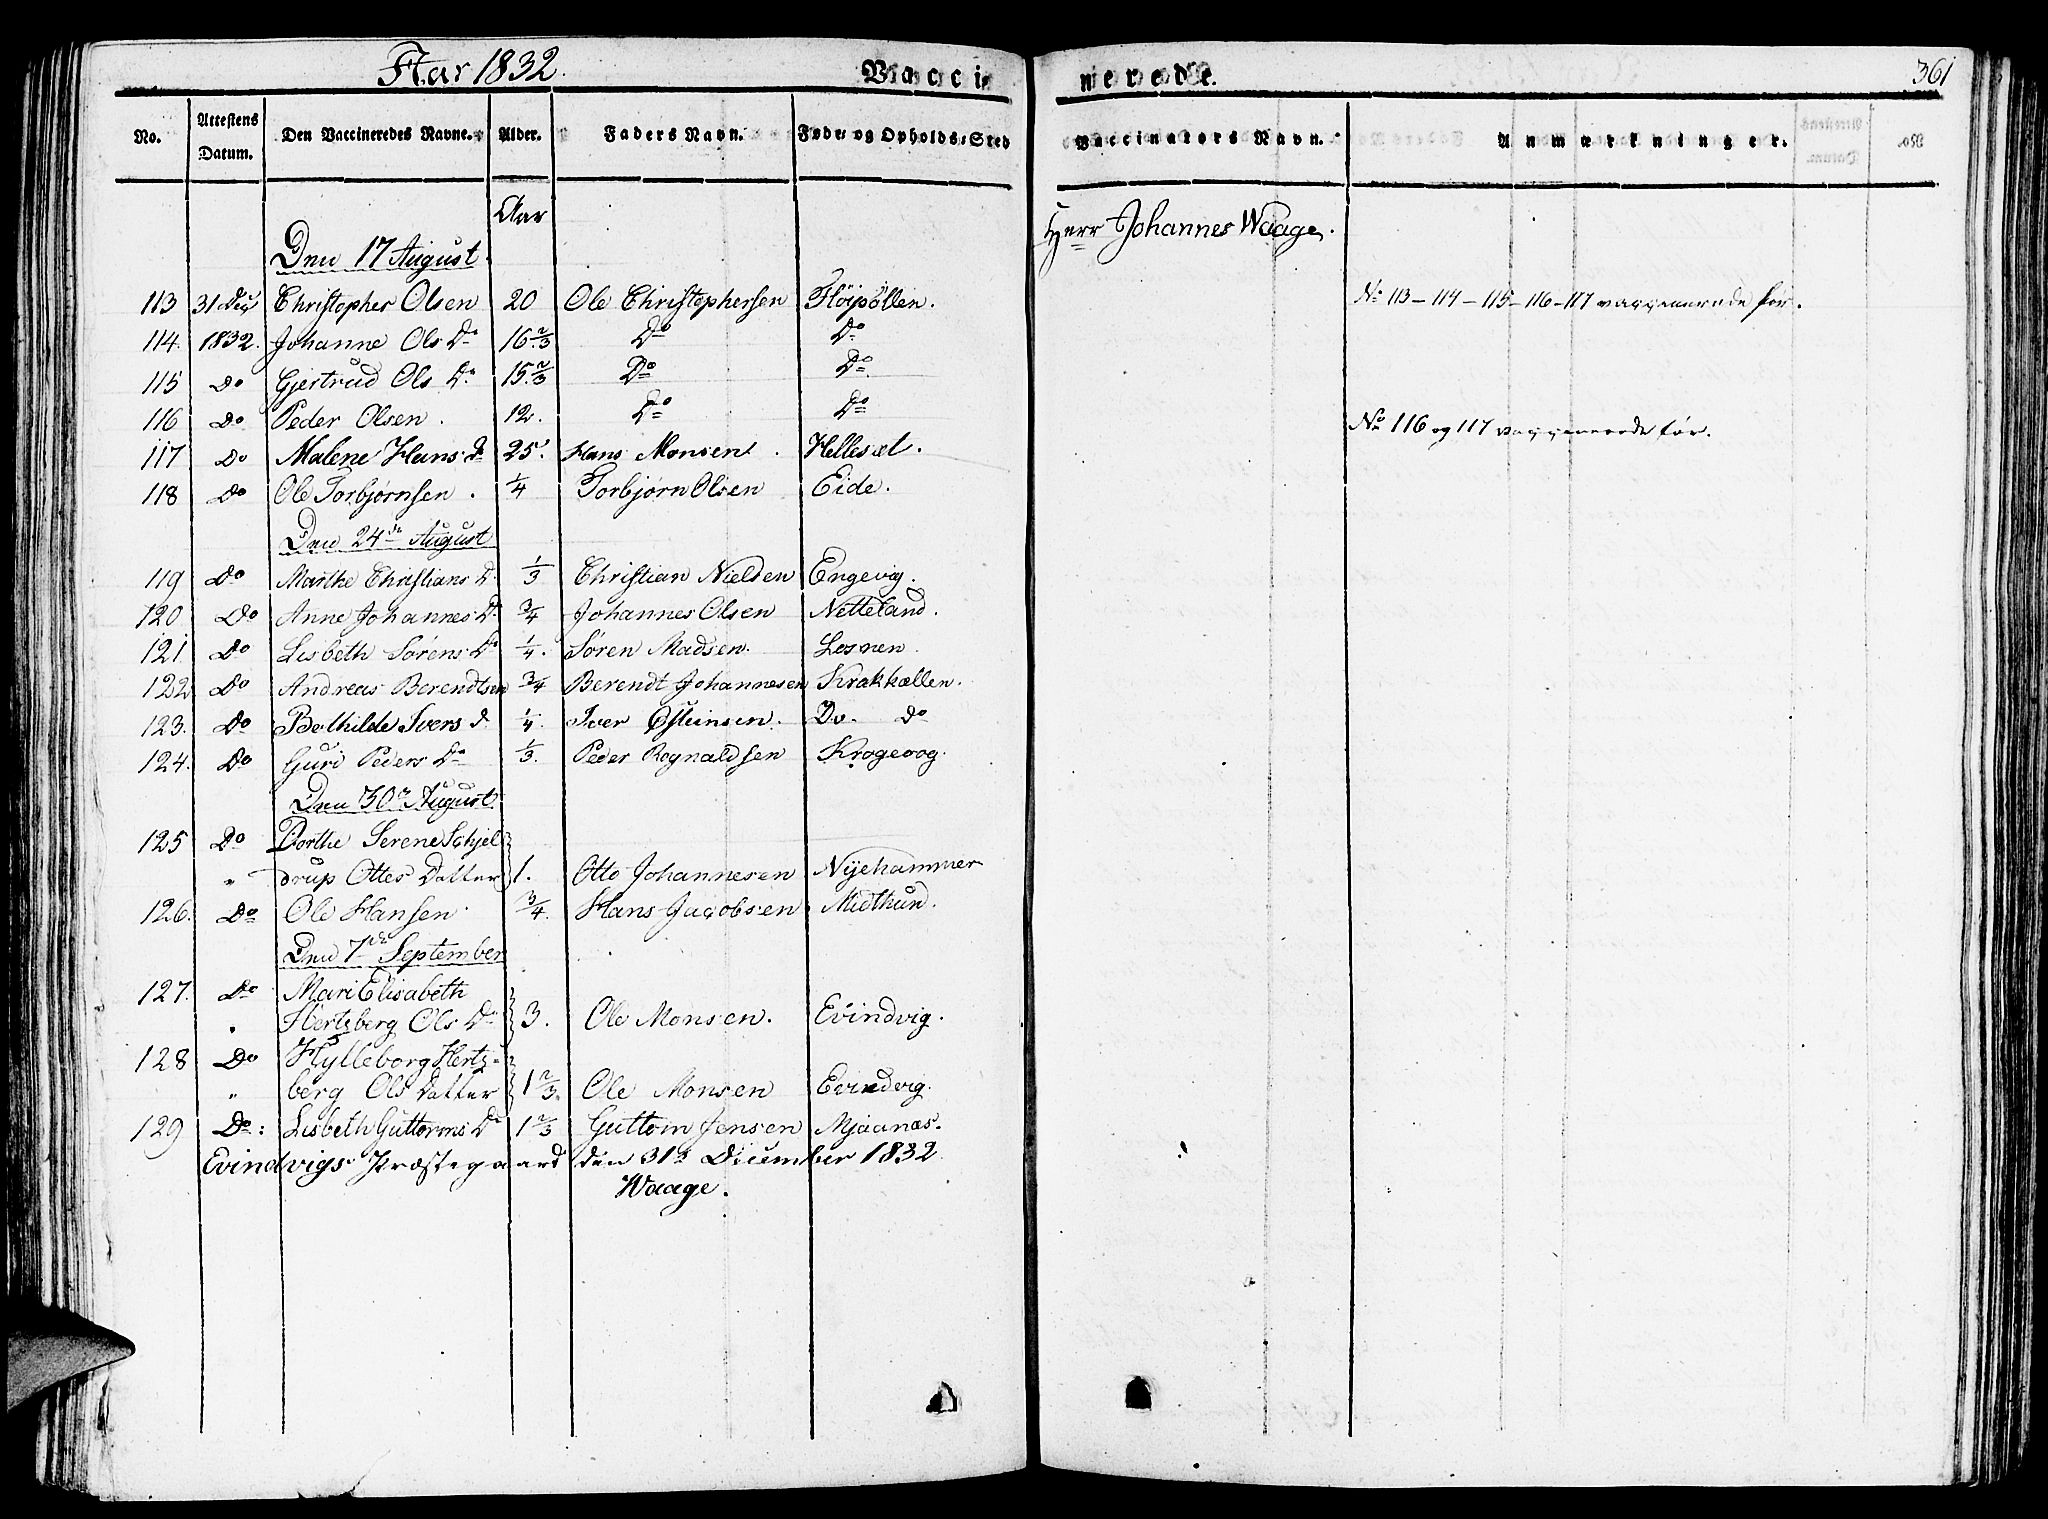 Aar 1832.
Vaccinerede.
361
No. | Attestens Datum. | Den Vaccineredes Navne. | Alder. | Faders Navn. | Føde- og Opholds-Sted | Vaccinators Navn. | Anmærkninger.
Aar
Den 17 August | Herr Johannes Waage.
113 | 31 Dec | Christopher Olsen | 20 | Ole Christophersen | Flöipöllen. | No 113-114-115-116-117 vaccenerede før.
114. | 1832. | Johanne Ols Dr | 16 2/3 | Do | Do
115 | Do | Gjertrud Ols Dr | 15 2/3 | Do | Do.
116 | Do | Peder Olsen. | 12. | Do | Do | No 116 og 117 vaccenerede før.
117 | Do | Malene Hans d | 25. | Hans Monsen. | Hellesæt.
118 | Do | Ole Torbjørnsen. | 1/4 | Torbjørn Olsen | Eide.
Den 24de August
119 | Do | Marthe Christians D. | 1/3 | Christian Nielsen | Engevig.
120 | Do | Anne Johannes D. | 3/4 | Johannes Olsen | Netteland.
121 | Do | Lisbeth Sørens Dr | 1/4. | Søren Madsen. | Losnen.
122 | Do | Andreas Berendtsen | 3/4 | Berendt Johannesen | Krakhællen.
123. | Do | Bothilde Ivers d. | 1/4. | Iver Østeinsen. | Do. do
124. | Do | Guri Peders Dr | 1/3. | Peder Rognaldsen | Krogevog.
Den 30n August
125 | Do | Dorthe Serene Schjel
" | drup Ottes Datter | 1. | Otto Johannesen | Nÿehammer
126. | Do | Ole Hansen. | 3/4. | Hans Jacobsen | Midthun.
Den 7de September
127. | Do | Mari Elisabeth
" | Hertzberg Ols Dr | 3. | Ole Monsen. | Evindvig.
128 | Do | Hylleborg Hertz-
" | berg Ols Datter | 1 2/3. | Ole Monsen | Evindvig.
129 | Do: | Lisbeth Guttorms Dr | 1 2/3 | Guttom Jensen | Mjaanæs.
Evindvigs Præstegaard den 31te December 1832.
Waage.